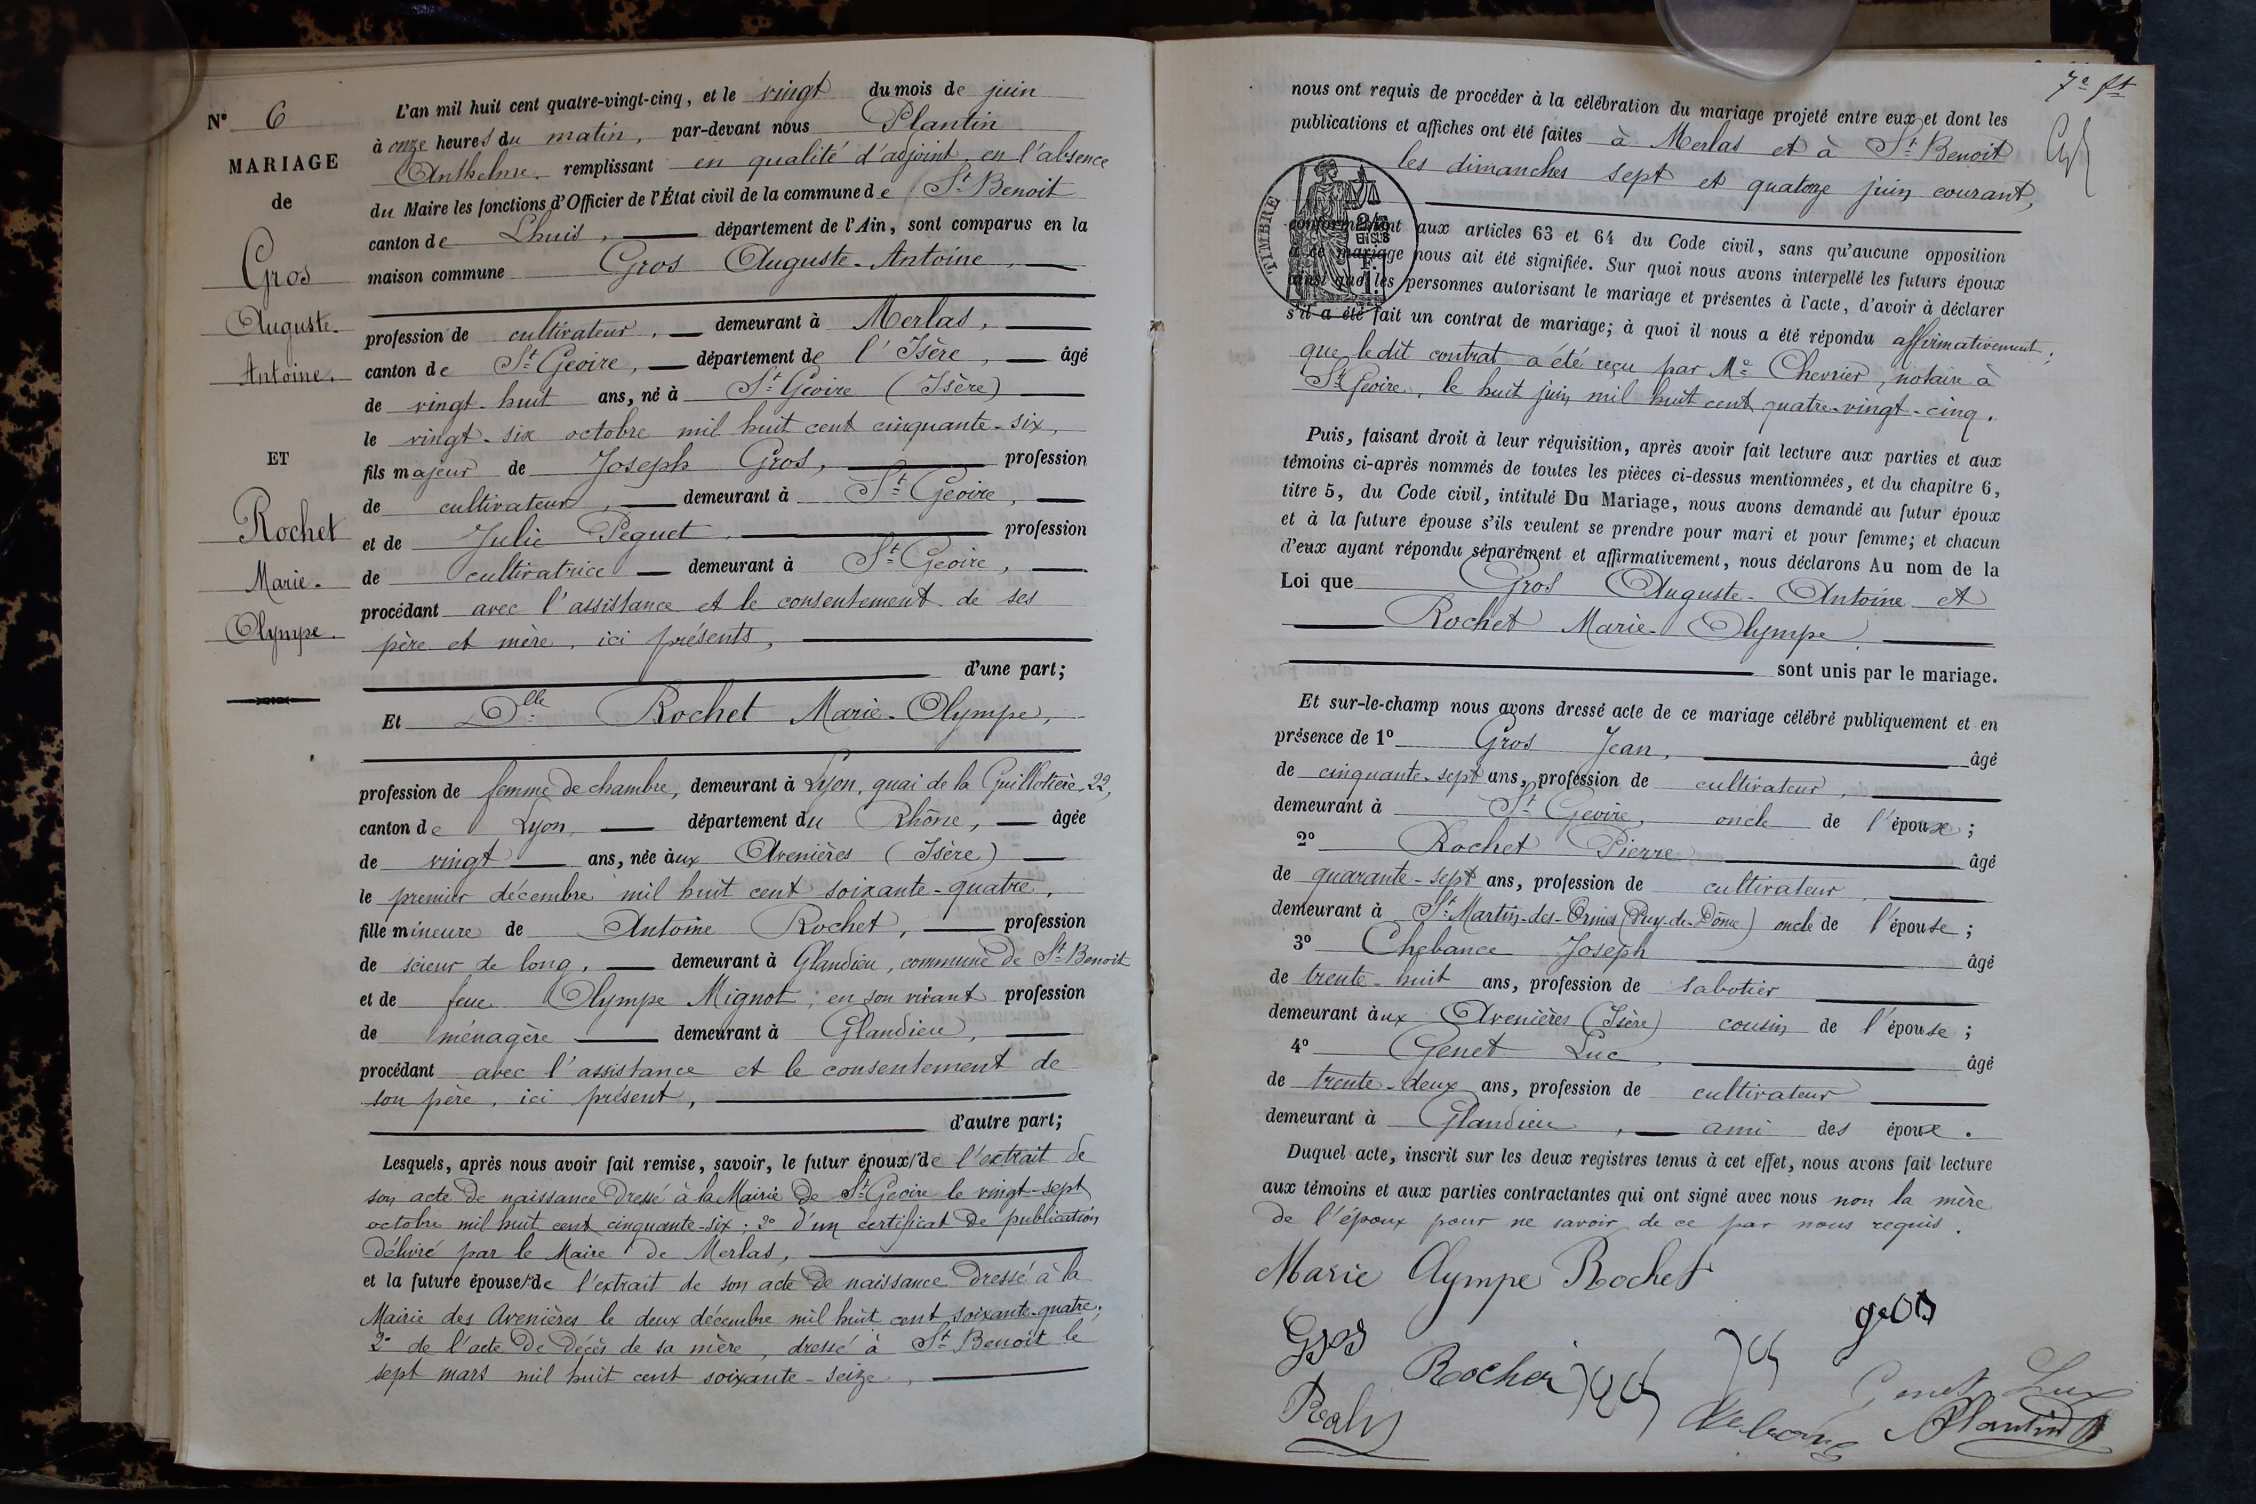 N° 6
MARIAGE
de
Gros
Auguste-
Antoine.
ET
Rochet
Marie-
Olympe.
L'an mil huit cent quatre-vingt-cinq, et le vingt du mois de juin
à onze heures du matin, par-devant nous Plantin
Anthelme. remplissant en qualité d'adjoint, en l'absence
du Maire les fonctions d'Officier de l'État civil de la commune de St Benoit
canton de Lhuis, département de l'Ain, sont comparus en la
maison commune Gros Auguste-Antoine,
profession de cultivateur, demeurant à Merlas,
canton de St Geoire, département de l'Isère, âgé
de vingt-huit ans, né à St Geoire (Isère)
le vingt-six octobre mil huit cent cinquante-six,
fils majeur de Joseph Gros, profession
de cultivateur, demeurant à St Geoire,
et de Julie Peguet profession
de cultivatrice demeurant à St Geoire,
procédant avec l'assistance et le consentement de ses
père et mère, ici présents,
d'une part;
Et Dlle Rochet Marie-Olympe,
profession de femme de chambre, demeurant à Lyon, quai de la Guillotière 22,
canton de Lyon, département du Rhône, âgée
de vingt ans, née aux Avenières (Isère)
le premier décembre mil huit cent soixante-quatre,
fille mineure de Antoine Rochet, profession
de scieur de long, demeurant à Glandieu, commune de St Benoit
et de feue Olympe Mignot; en son vivant profession
de ménagère demeurant à Glandieu,
procédant avec l'assistance et le consentement de
son père, ici présent,
d'autre part;
Lesquels, après nous avoir fait remise, savoir, le futur époux 1° de l'extrait de
son acte de naissance dressé à la Mairie de St Geoire le vingt-sept
octobre mil huit cent cinquante-six; 2° d'un certificat de publication
délivré par le Maire de Merlas,
et la future épouse 1° de l'extrait de son acte de naissance dressé à la
Mairie des Avenières le deux décembre mil huit cent soixante-quatre;
2° de l'acte de décès de sa mère, dressé à St Benoit le
sept mars mil huit cent soixante-seize,
7e ft
nous ont requis de procéder à la célébration du mariage projeté entre eux et dont les
publications et affiches ont été faites à Merlas et à St Benoit
les dimanches sept et quatorze juin courant,
TIMBRE
conformément aux articles 63 et 64 du Code civil, sans qu'aucune opposition
à ce mariage nous ait été signifiée. Sur quoi nous avons interpellé les futurs époux
ainsi que les personnes autorisant le mariage et présentes à l'acte, d'avoir à déclarer
s'il a été fait un contrat de mariage; à quoi il nous a été répondu affirmativement;
que le dit contrat a été reçu par Me Chevrier, notaire à
St Geoire, le huit juin mil huit cent quatre-vingt-cinq.
Puis, faisant droit à leur réquisition, après avoir fait lecture aux parties et aux
témoins ci-après nommés de toutes les pièces ci-dessus mentionnées, et du chapitre 6,
titre 5, du Code civil, intitulé Du Mariage, nous avons demandé au futur époux
et à la future épouse s'ils veulent se prendre pour mari et pour femme; et chacun
d'eux ayant répondu séparément et affirmativement, nous déclarons Au nom de la
Loi que Gros Auguste-Antoine et
Rochet Marie-Olympe
sont unis par le mariage.
Et sur-le-champ nous avons dressé acte de ce mariage célébré publiquement et en
présence de 1° Gros Jean, âgé
de cinquante-sept ans, profession de cultivateur,
demeurant à St Geoire, oncle de l'époux;
2° Rochet Pierre âgé
de quarante-sept ans, profession de cultivateur,
demeurant à St Martin-des-Ormes (Puy-de-Dôme) oncle de l'épouse;
3° Chebance Joseph âgé
de trente-huit ans, profession de sabotier
demeurant aux Avenières (Isère) cousin de l'épouse;
4° Genet Luc, âgé
de trente-deux ans, profession de cultivateur
demeurant à Glandieu, ami des époux.
Duquel acte, inscrit sur les deux registres tenus à cet effet, nous avons fait lecture
aux témoins et aux parties contractantes qui ont signé avec nous non la mère
de l'époux pour ne savoir, de ce par nous requis.
Marie Olympe Rochet
Gros
gros
Rochet
Genet Luc
Plantin